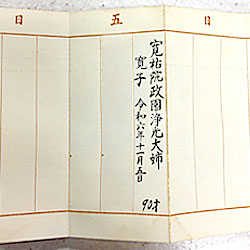 日
五
日
寛祐院政園浄光大姉
寛子 令和六年十一月五日
90才